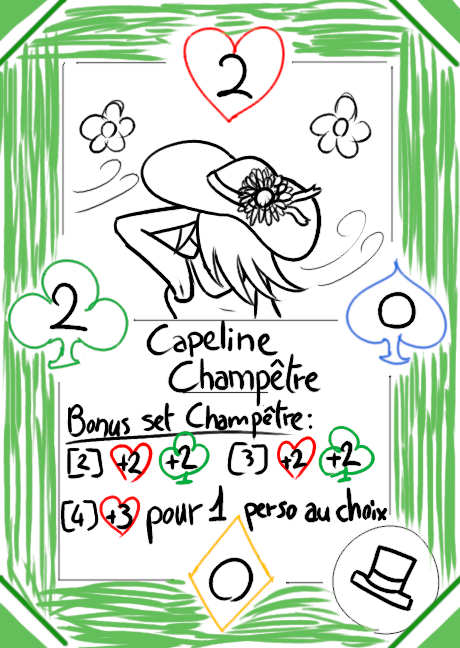 2
2
0
Capeline
Champêtre
Bonus set Champêtre:
[2] +2 +2 [3] +2 +2
[4] +3 pour 1 perso au choix
0